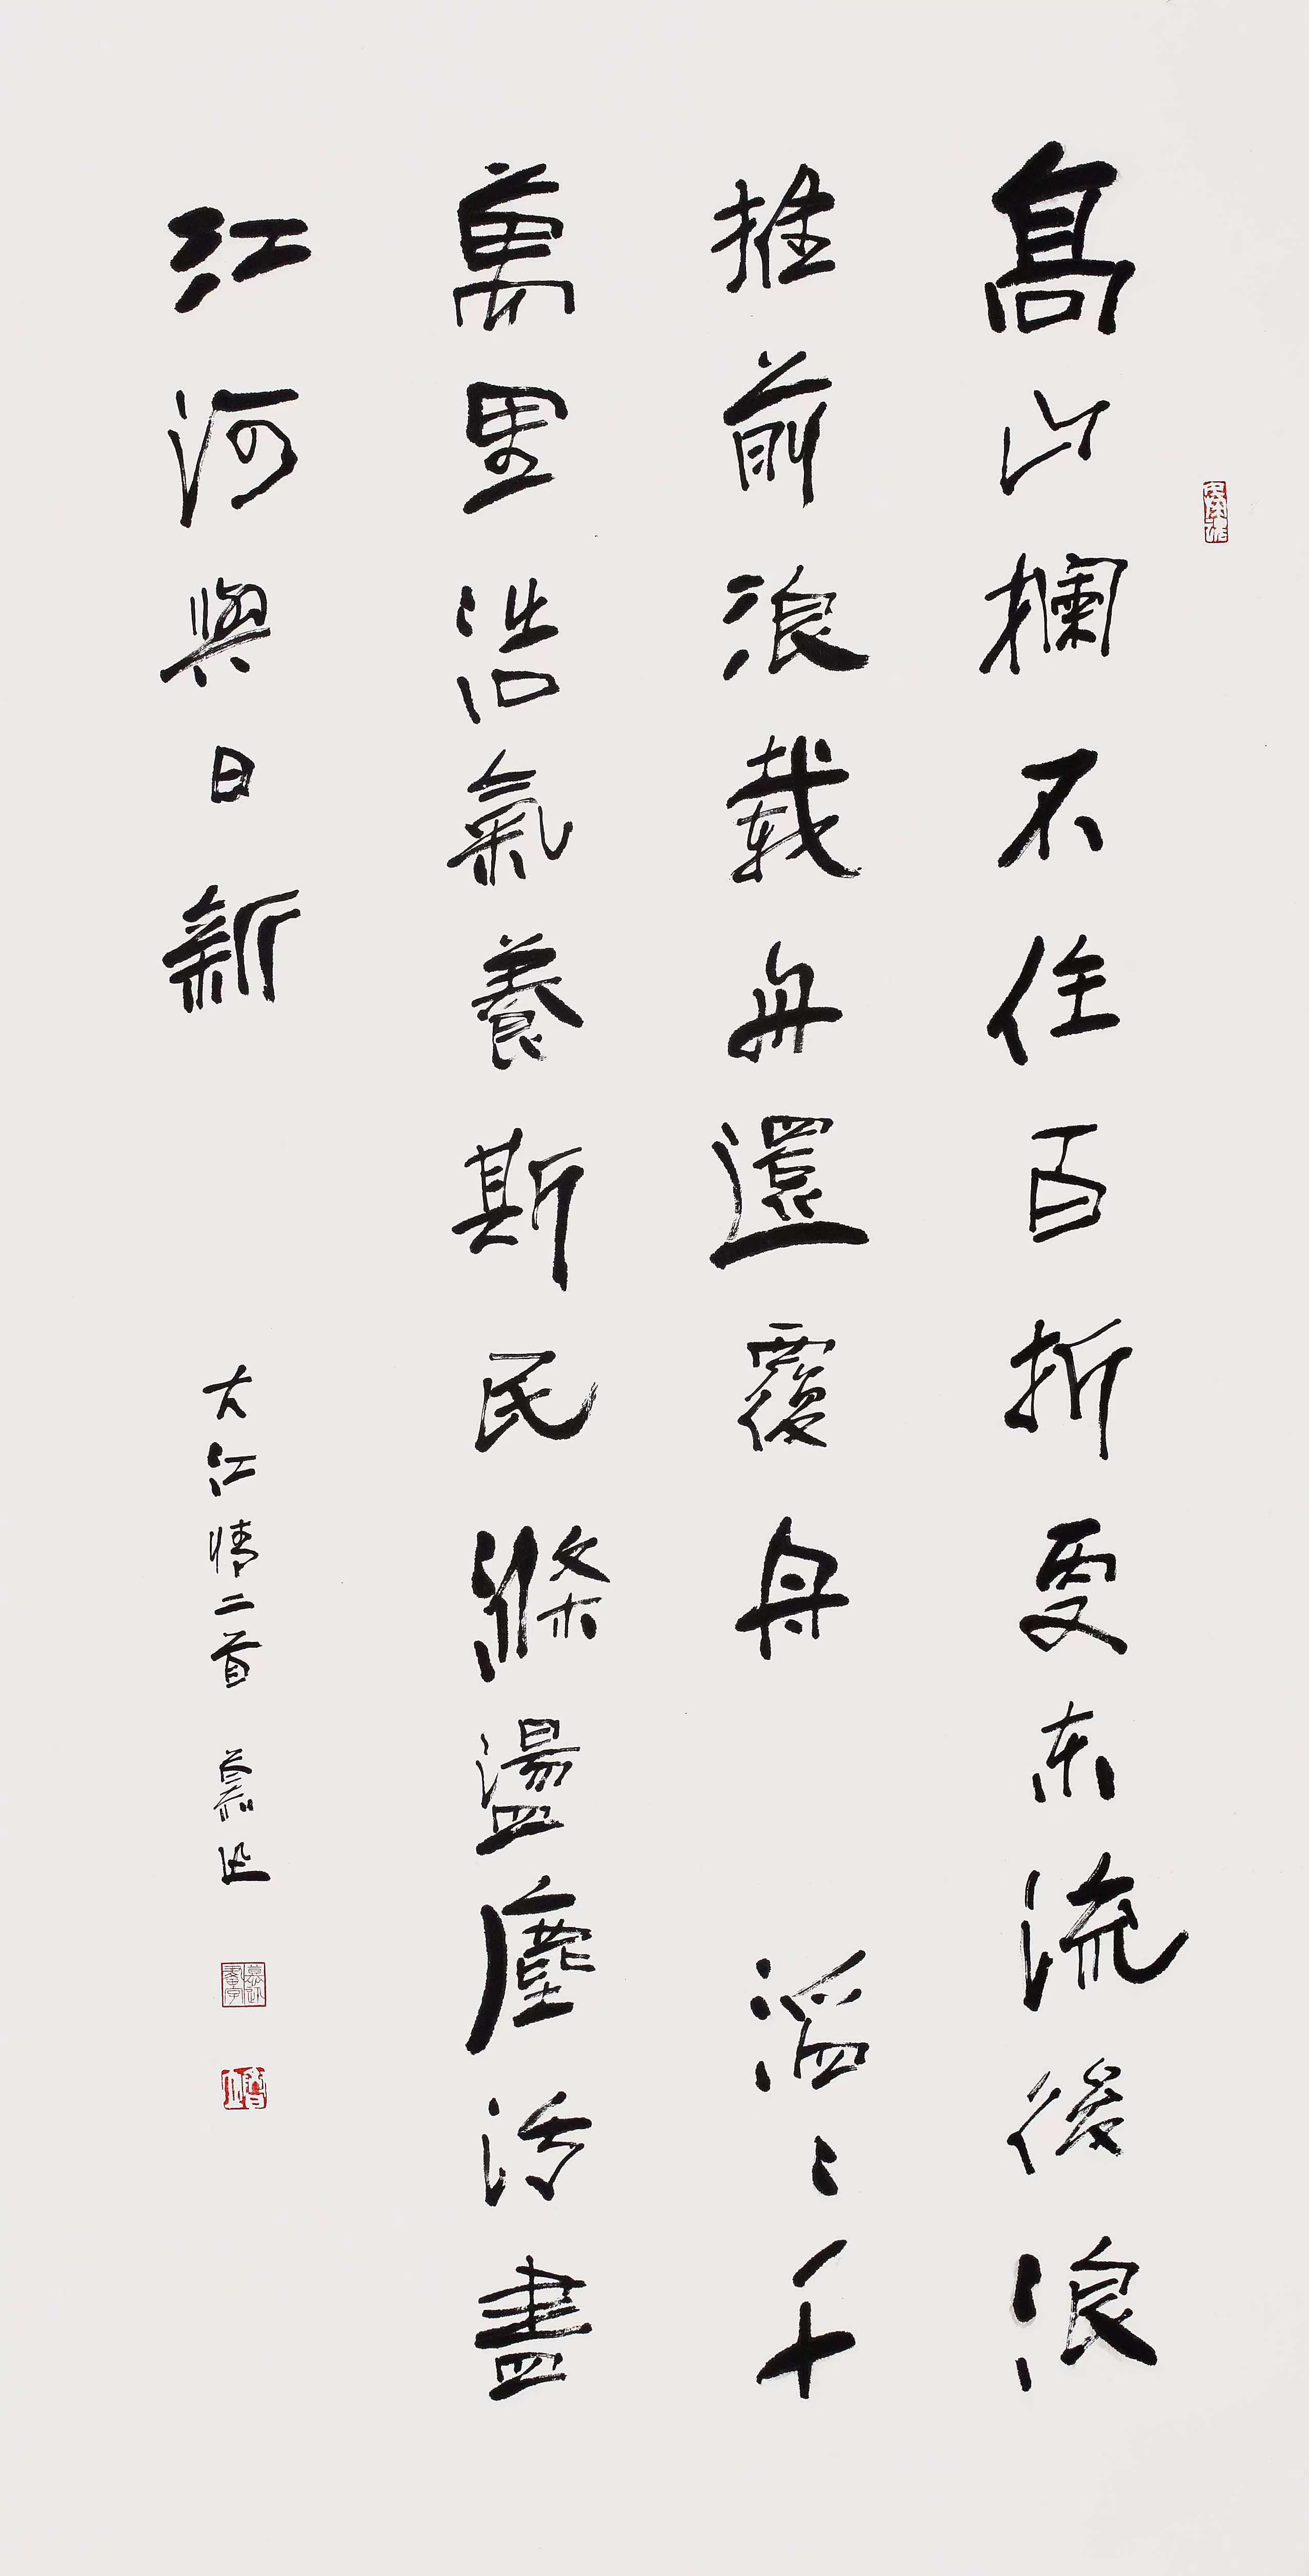 高山攔不住百折更東流後浪
推前浪載舟還覆舟 滔〻千
萬里浩氣養斯民滌盪塵污盡
江河與日新
大江情二首 慕